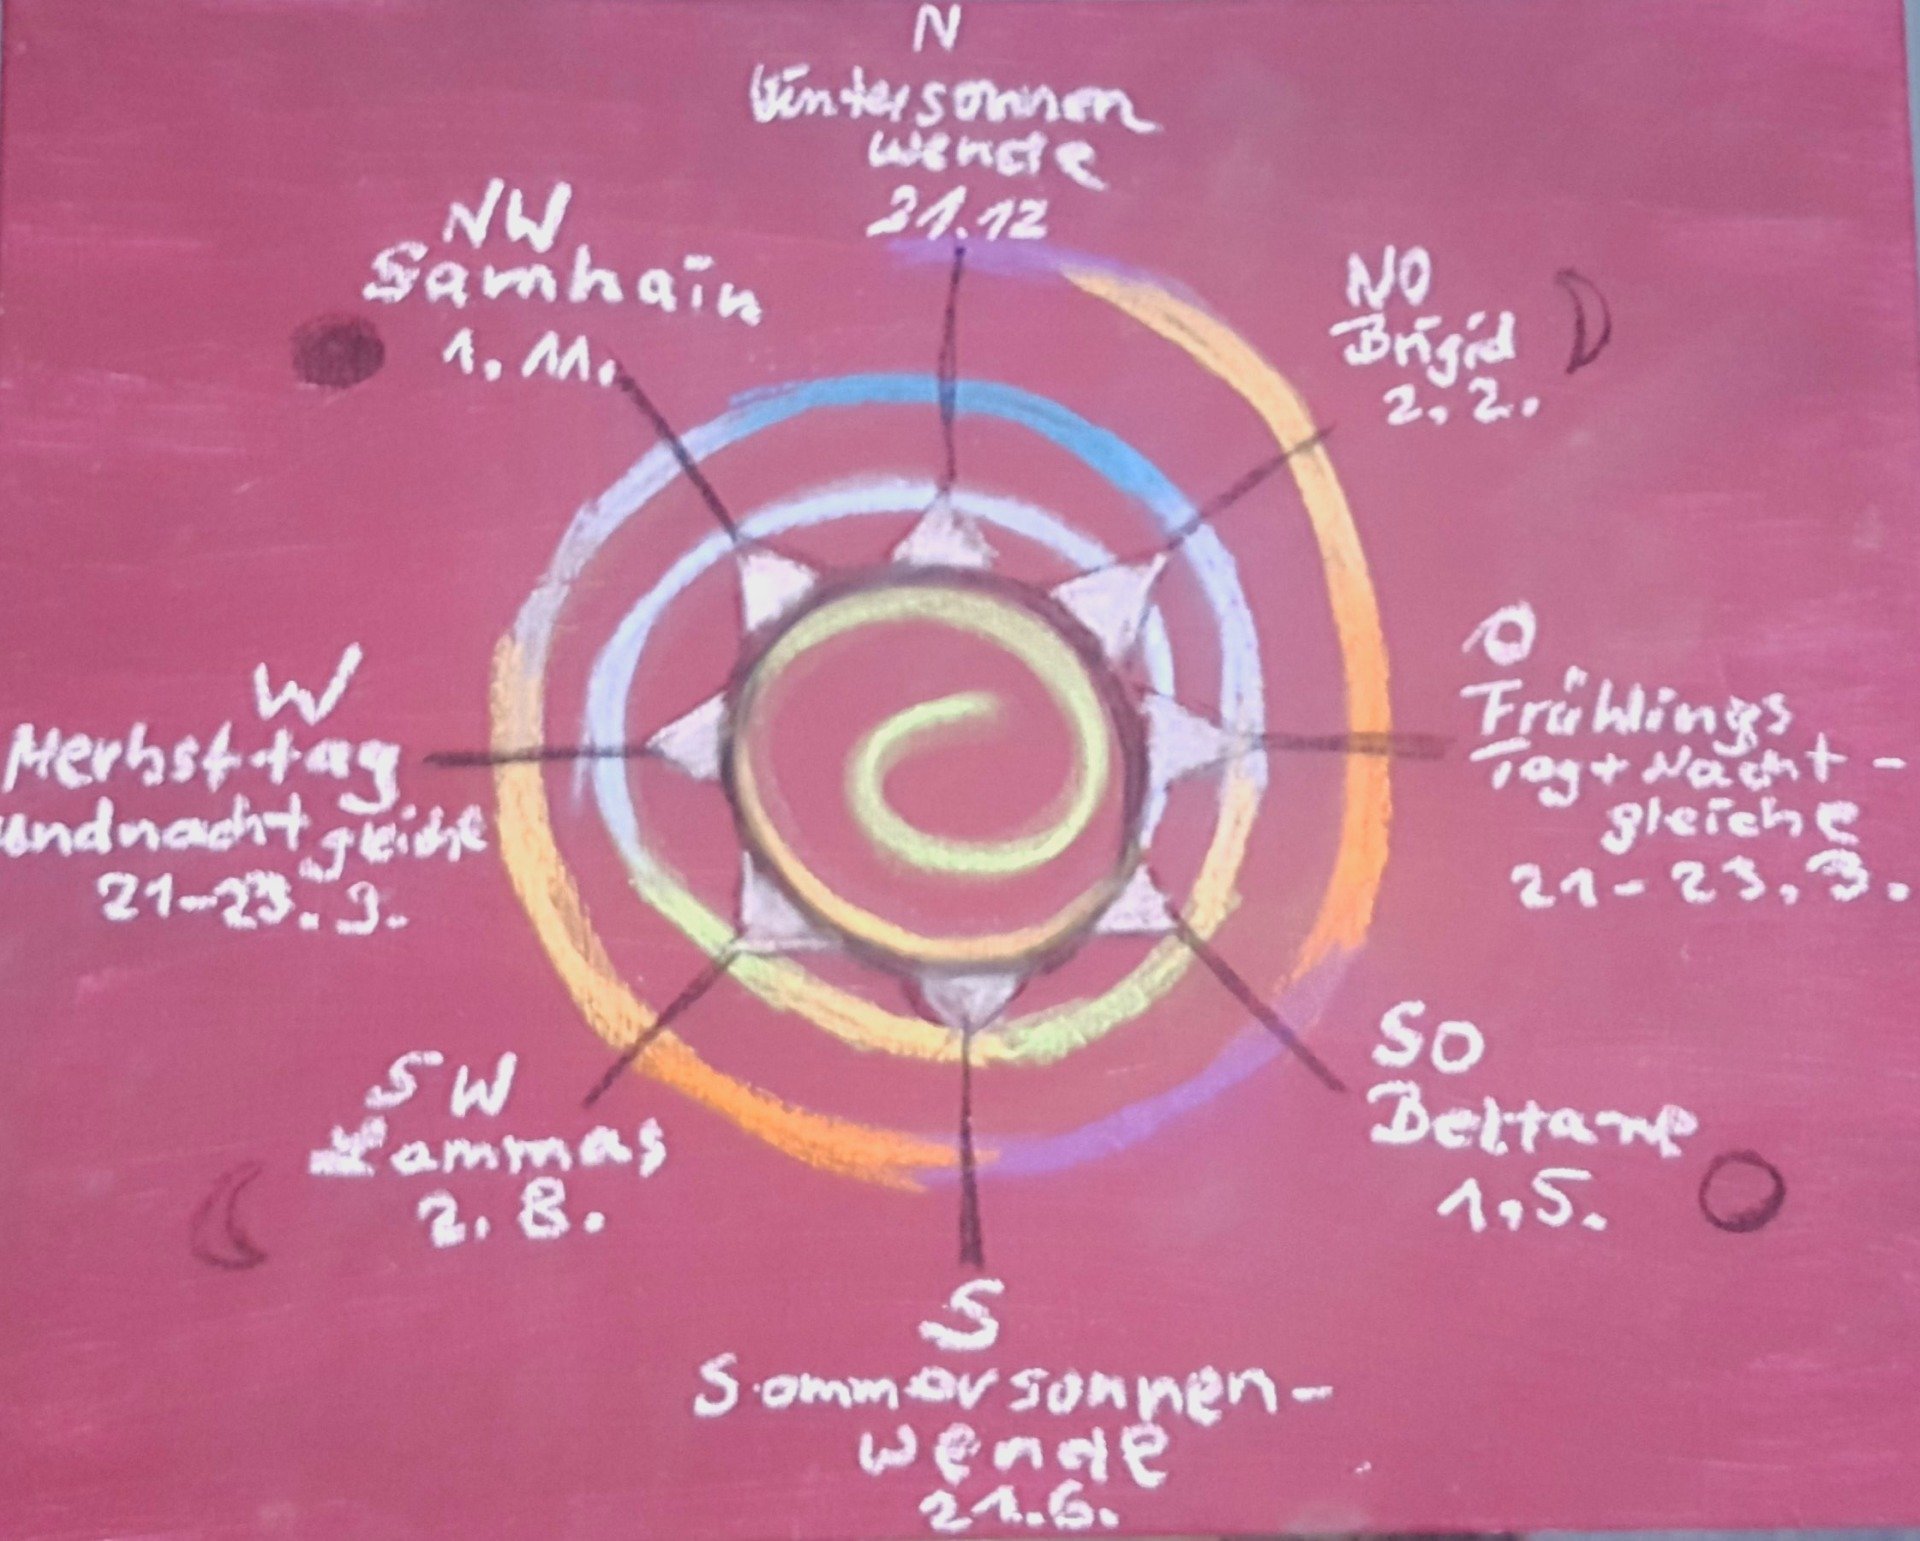 N
Wintersonnen
wende
21.12
NW
Samhain
1.11.
NO
Brigid
2.2.
O
Frühlings
Tag + Nacht-
gleiche
21-23.3.
SO
Beltane
1.5.
S
Sommersonnen-
wende
21.6.
SW
Lammas
2.8.
W
Herbsttag
undnachtgleiche
21-23.9.